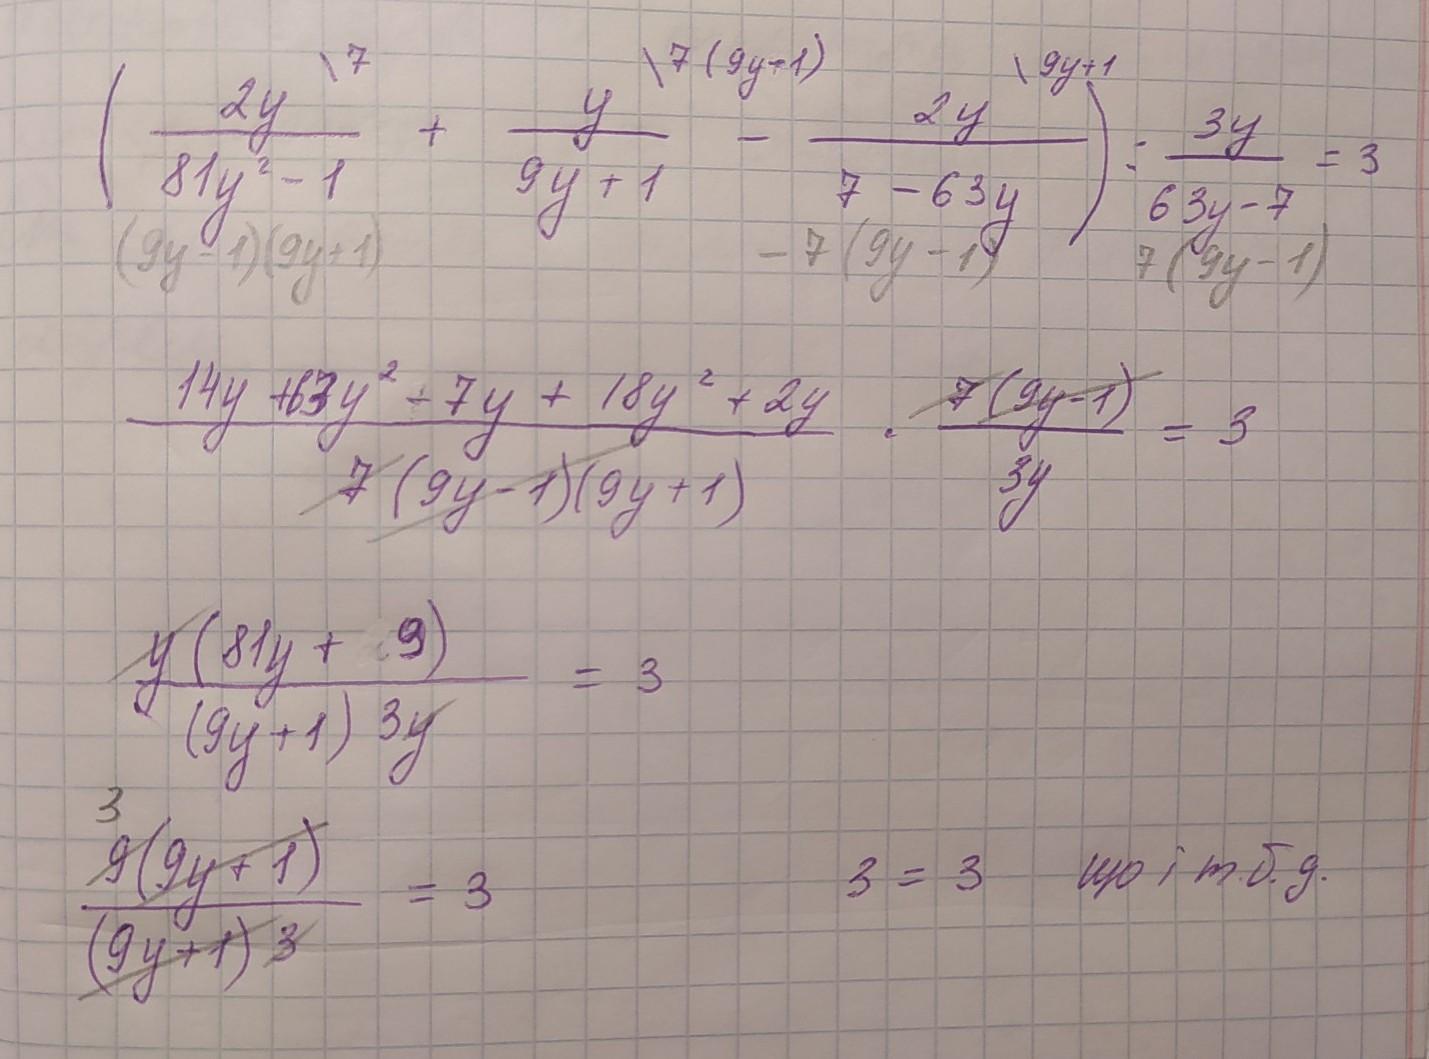 \7 \7(9y-1) \9y+1
(2y/(81y² - 1) + y/(9y + 1) - 2y/(7 - 63y)) : 3y/(63y - 7) = 3
(9y - 1)(9y + 1) -7(9y - 1) 7(9y - 1)
(14y + 63y² - 7y + 18y² + 2y)/(7(9y - 1)(9y + 1)) · 7(9y - 1)/3y = 3
y(81y + 9)/((9y + 1) 3y) = 3
3
9(9y + 1)/((9y + 1) 3) = 3 3 = 3 що і т.б.д.